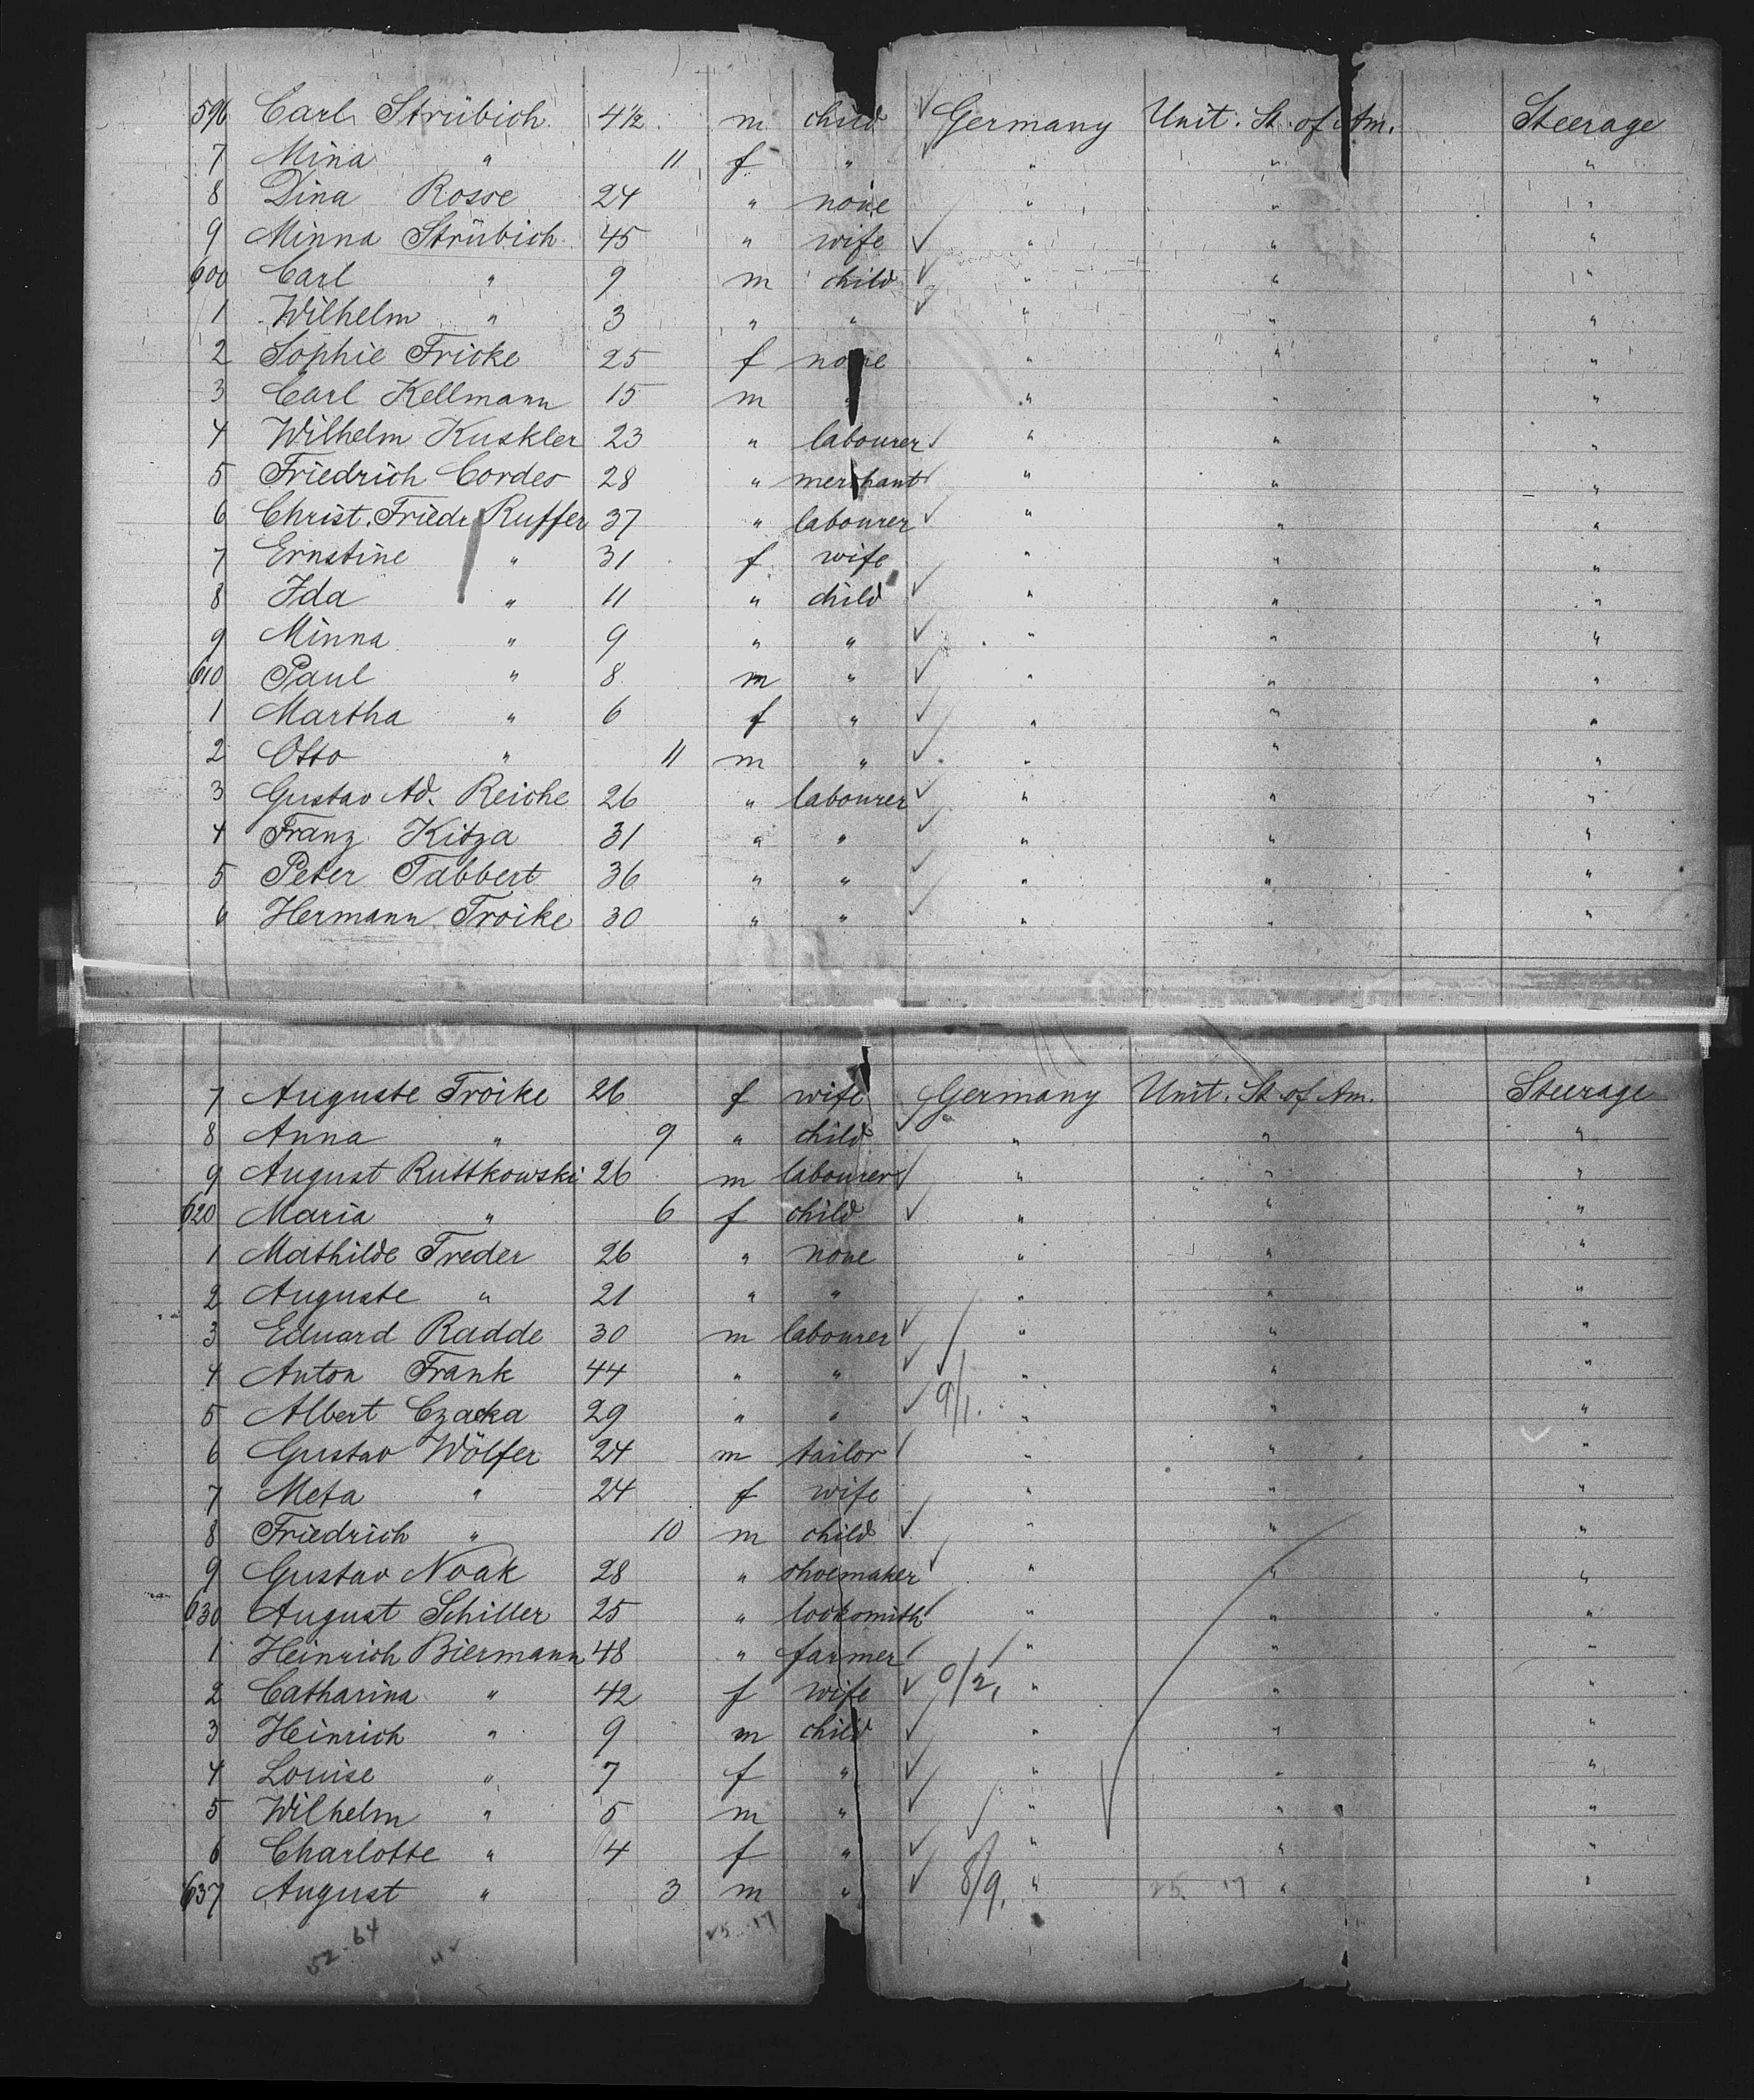 596 Carl Strübich 4½ m child Germany Unit. St. of Am. Steerage
7 Mina " 11 f " " " "
8 Dina Rosse 24 " none " " "
9 Minna Strübich 45 " wife " " "
600 Carl " 9 m child " " "
1 Wilhelm " 3 " " " " "
2 Sophie Fricke 25 f none " " "
3 Carl Kellmann 15 m " " " "
4 Wilhelm Kuskler 23 " labourer " " "
5 Friedrich Cordes 28 " merchant " " "
6 Christ. Friedr Ruffer 37 " labourer " " "
7 Ernstine " 31 f wife " " "
8 Ida " 11 " child " " "
9 Minna " 9 " " " " "
610 Paul " 8 m " " " "
1 Martha " 6 f " " " "
2 Otto " 11 m " " " "
3 Gustav Ad. Reiche 26 " labourer " " "
4 Franz Kitza 31 " " " " "
5 Peter Tabbert 36 " " " " "
6 Hermann Troike 30 " " " " "
7 Auguste Troike 26 f wife Germany Unit. St. of Am. Steerage
8 Anna " 9 " child " " "
9 August Ruttkowski 26 m labourer " " "
620 Maria " 6 f child " " "
1 Mathilde Treder 26 " none " " "
2 Auguste " 21 " " " " "
3 Eduard Radde 30 m labourer " " "
4 Anton Frank 44 " " " " "
5 Albert Czacka 29 " " 9/1. " " "
6 Gustav Wölfer 24 m tailor " " "
7 Meta " 24 f wife " " "
8 Friedrich " 10 m child " " "
9 Gustav Noak 28 " shoemaker " " "
630 August Schiller 25 " locksmith " " "
1 Heinrich Biermann 48 " farmer " " "
2 Catharina " 42 f wife 0/2, " " "
3 Heinrich " 9 m child " " "
4 Louise " 7 f " " " "
5 Wilhelm " 5 m " " " "
6 Charlotte " 4 f " " " "
637 August " 3 m " 8/9. " 25 17 " "
52-64 25-17